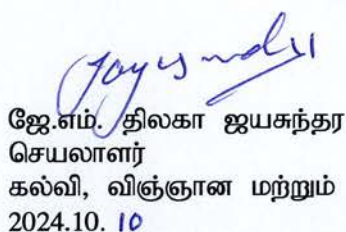 ஜே.எம். திலகா ஜயசுந்தர
செயலாளர்
கல்வி, விஞ்ஞான மற்றும்
2024.10. 10